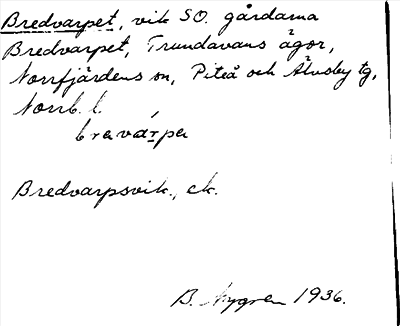 Bredvarpet, vik SO. gårdarna
Bredvarpet, Trundavans ägor,
Norrfjärdens sn, Piteå och Älvsby tg,
Norrb. l.
bravárpa
Bredvarpsvik., ek.
B. Nygren 1936.